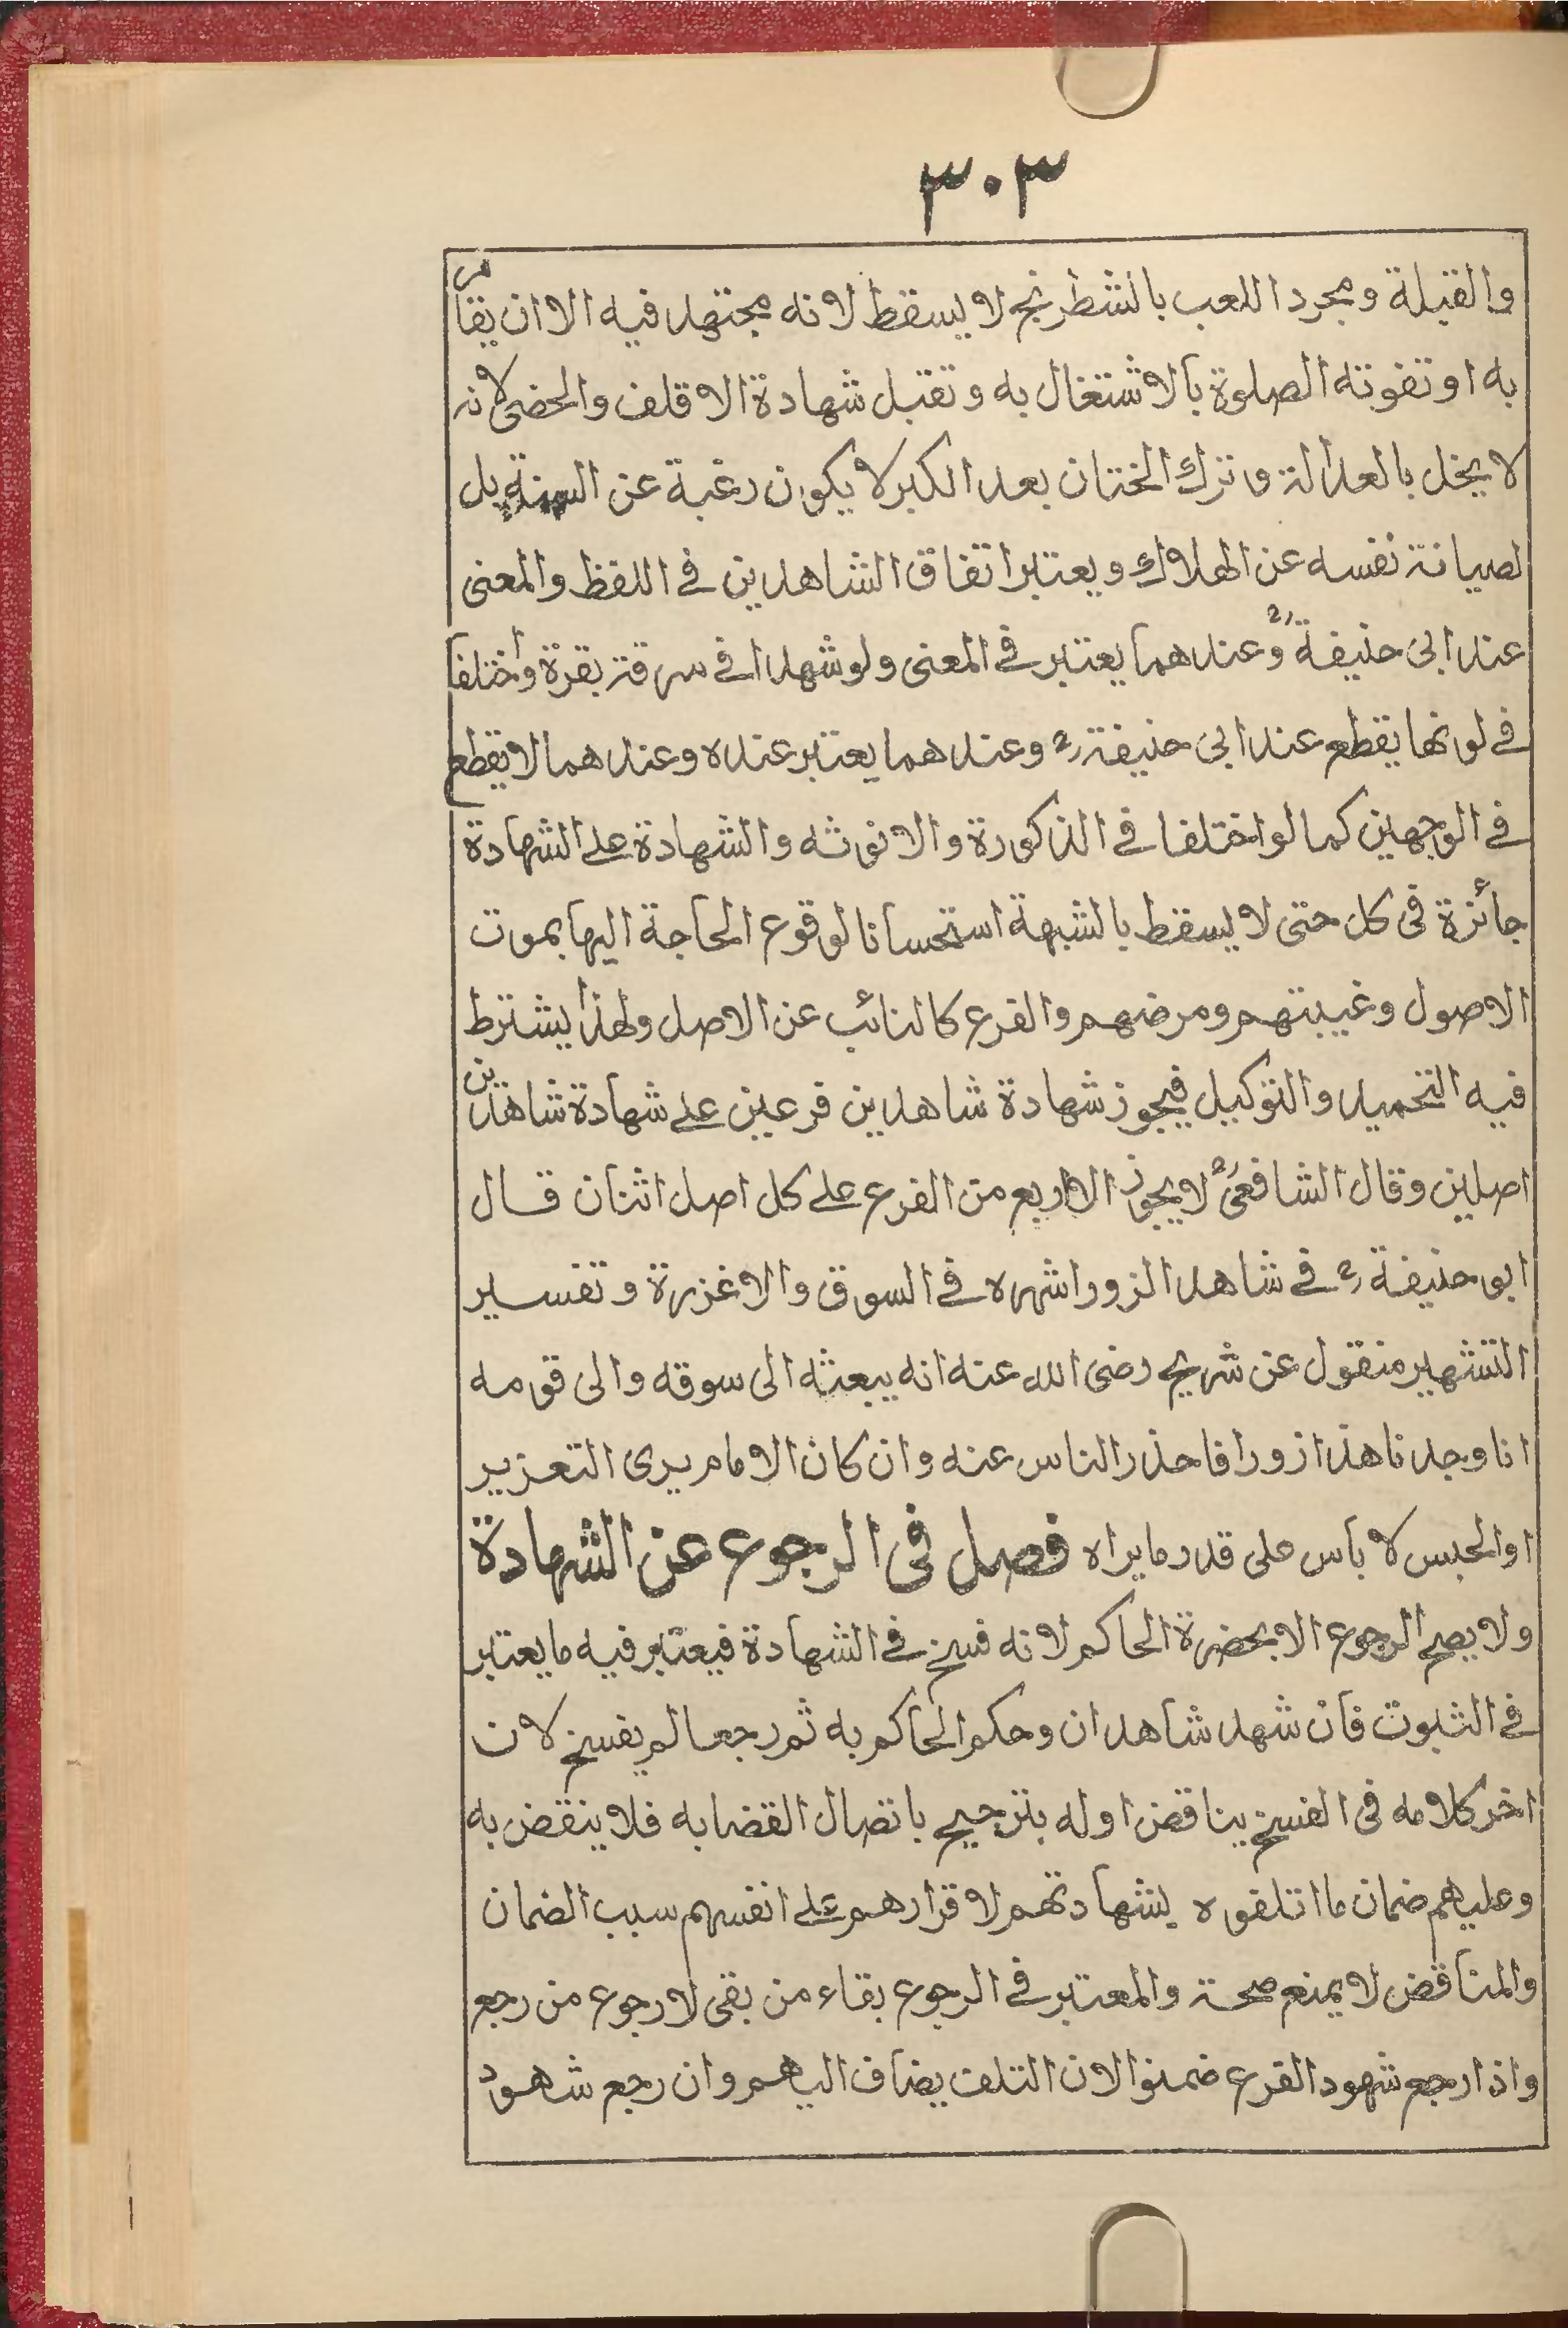 ٣٠٣
والقبلة ومجرد اللعب بالشطرنج لا يسقط لانه مجتهد فيه الا ان يقامر
به او تفوته الصلوة بالاشتغال به وتقبل شهادة الاقلف والخصى لانه
لا يخل بالعدالة وترك الختان بعد الكبر لا يكون رغبة عن السنة بل
لصيانة نفسه عن الهلاك ويعتبر اتفاق الشاهدين فى اللفظ والمعنى
عند ابى حنيفة رح وعندهما يعتبر فى المعنى ولو شهدا فى سرقة بقرة واختلفا
فى لونها يقطع عند ابى حنيفة رح وعندهما يعتبر عنده وعندهما لا يقطع
فى الوجهين كما لو اختلفا فى الذكورة والانوثه والشهادة على الشهادة
جائزة فى كل حتى لا يسقط بالشبهة استحسانا لوقوع الحاجة اليها بموت
الاصول وغيبتهم ومرضهم والفرع كالنائب عن الاصل ولهذا يشترط
فيه التحميد والتوكيل فيجوز شهادة شاهدين فرعين على شهادة شاهدين
اصلين وقال الشافعى رح لا يجوز الا اربع من الفرع على كل اصل اثنان قال
ابو حنيفة رح فى شاهد الزور اشهره فى السوق والا غزرة وتفسير
التشهير منقول عن شريح رضى الله عنه انه يبعثه الى سوقه والى قومه
انا وجدنا هذا زورا فاحذر الناس عنه وان كان الامام يرى التعزير
او الحبس لا بأس على قدر ما يراه فصل فى الرجوع عن الشهادة
ولا يصح الرجوع الا بحضرة الحاكم لانه فسخ فى الشهادة فيعتبر فيه ما يعتبر
فى الثبوت فان شهد شاهدان وحكم الحاكم به ثم رجعا لم يفسخ لان
اخر كلامه فى الفسخ يناقض اوله بترجيح باتصال القضابه فلا ينقض به
وعليهم ضمان ما اتلفوه بشهادتهم لاقرارهم على انفسهم سبب الضمان
والمناقض لا يمنع صحة والمعتبر فى الرجوع بقاء من بقى لا رجوع من رجع
واذا رجع شهود الفرع ضمنوا لان التلف يضاف اليهم وان رجع شهود